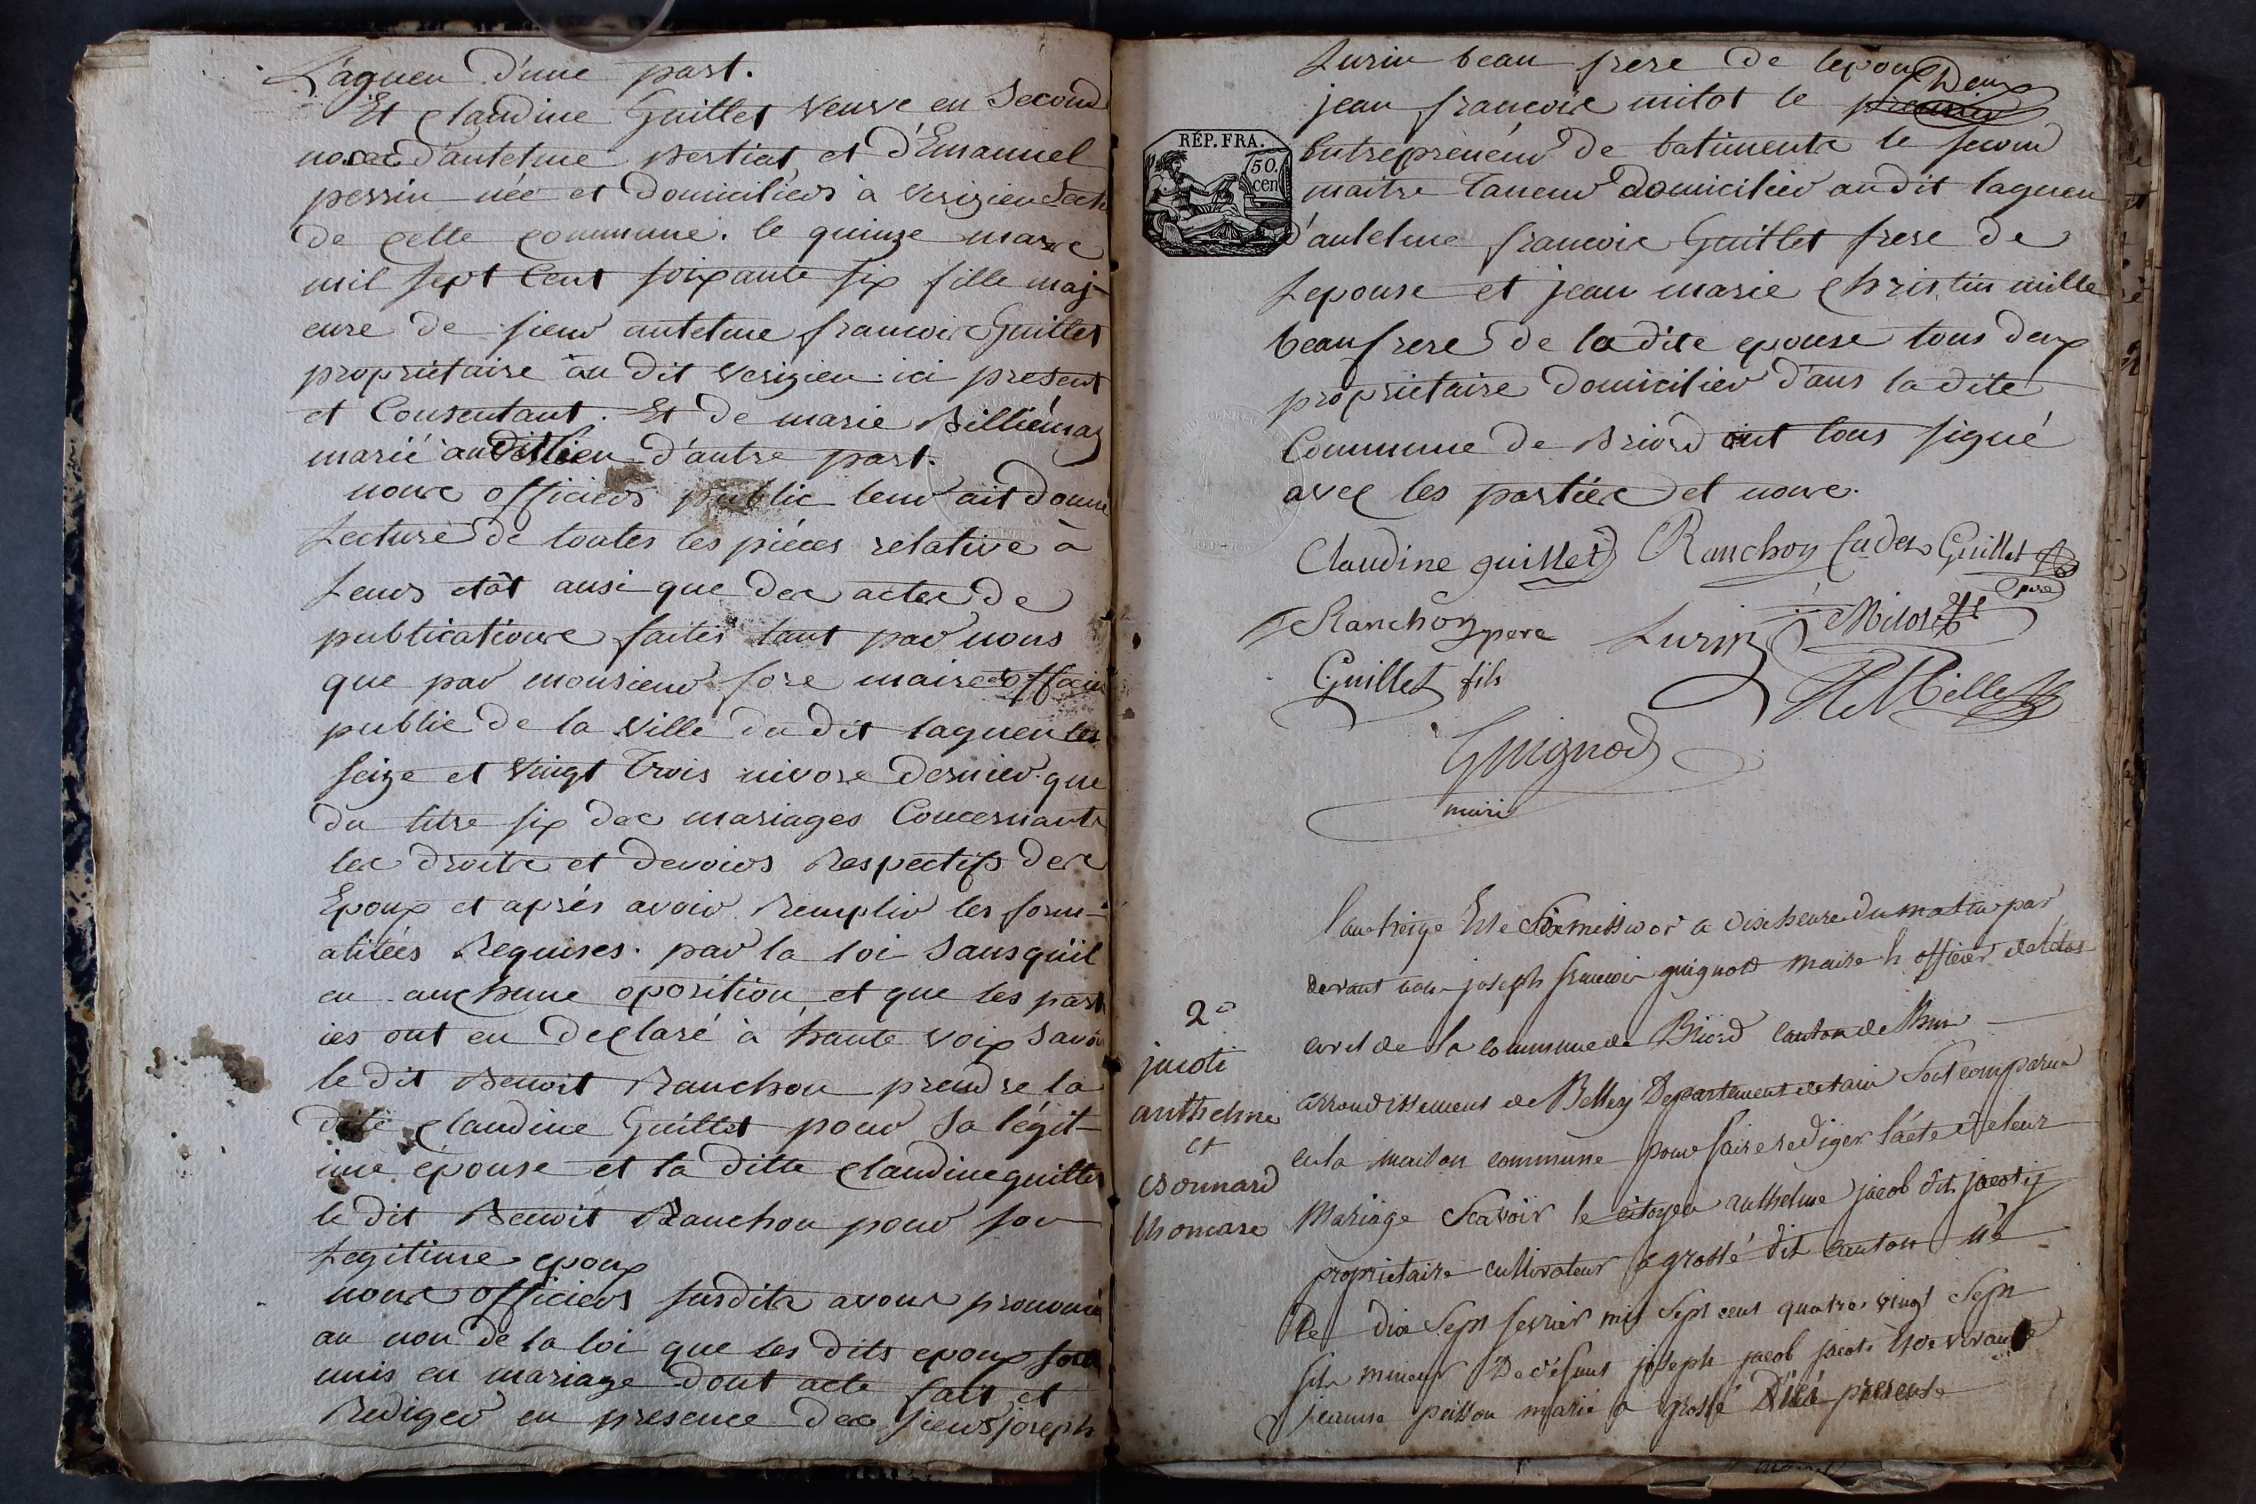 Lagneu d'une part.
Et Claudine Guillet veuve en second
noces d'antelme Bertiat et d'Emanuel
perrin née et domiciliéos à verizieu Sect
de cette commune. le quinze mars
mil sept cent soixante six fille maj-
eure de sieur antelme francois Guillet
propriétaire au dit verizieu ici present
et consentant. Et de marie Billiémaz
marié au dit lieu d'autre part.
nous officiers public leur ait donné
Lecture de toutes les piéces relative à
Leurs etât ausi que des actes de
publications faites tant par nous
que par monsieur fore maire et offici
public de la ville du dit lagneu les
seize et vingt trois nivose dernier que
du titre six des mariages Concernants
les droits et devoirs Respectifs des
Epoux et aprés avoir Remplir les form-
alitées Requises. par la loi sans qu'il
eu auchune oposition et que les part
ies ont eu declaré à haute voix savoi
le dit Benoit Ranchon prendre la
dite Claudine Guillet pour sa légit-
ime épouse et la ditte Claudine guillet
le dit Benoit Ranchon pour son
Legitime epoux
nous officiers susdits avons prononcé
au non de la loi que les dits epoux sont
unis en mariage dont acte fait et
Rediger en presence des sieurs joseph
Lurin beau frere de lepoux
jean francois mitot le premier Deux
Entrepreneur de batiments le second
RÉP. FRA.
50.
cen
maitre Taneur domicilier au dit lagneu
d'antelme francois Guillet frere de
Lepouse et jean marie Christin mille
beaufrere de la dite epouse tous deux
propriétaire domicilier dans la dite
Commune de Briord ont tous signé
avec les parties et nous.
Claudine guillet Ranchon Cadet Guillet
pere
Ranchon pere Lurin Mitot
Guillet fils Mille
Guignod
maire
2e
jacoti
anthelme
et
Bonnard
thomase
l'an treize le Six messidor a dix heure du matin par
devant nous joseph francois guignod maire h officier de létat
civil de la commune de Briord canton de lhuis
arrondissement de Belley Département de lain Sont comparu
en la maison commune pour faire rediger lácte de leur
Mariage Scavoir le citoyen anthelme jacob dit jacoty
propriétaire cultivateur a groslé dit canton né
le dix Sept fevrier mil Sept cent quatre vingt Sept
fils mineur De défunt joseph jacob jacoti Et de vivante
jeanne peisson marié a groslé D'ici presente